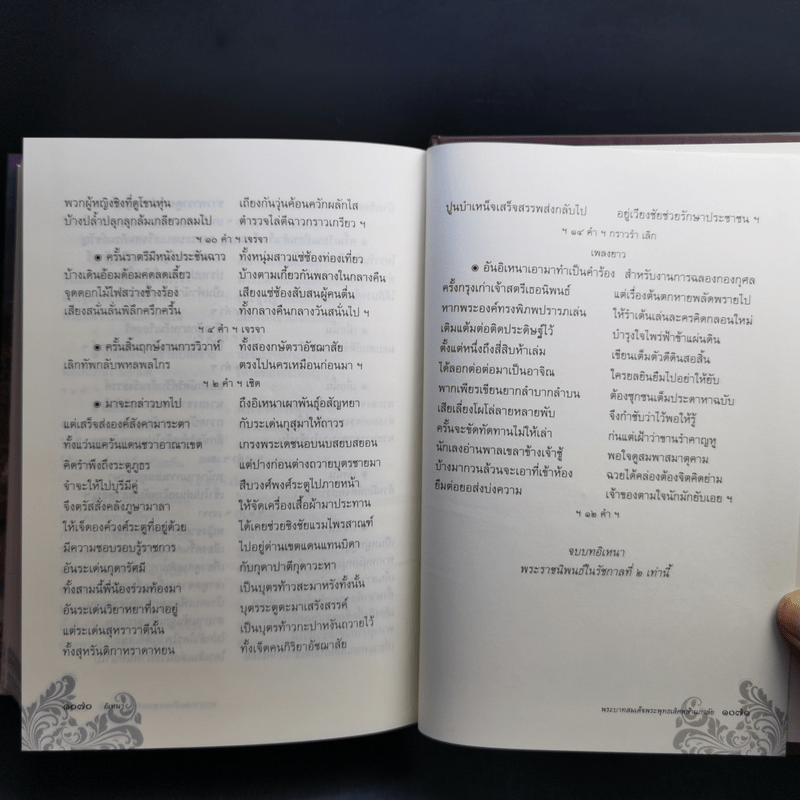 พวกผู้หญิงชิงที่ดูโขนหุ่น เถียงกันวุ่นค้อนควักผลักไส
บ้างปล้ำปลุกลุกล้มเกลียวกลมไป ตำรวจไล่ตีฉาวกราวเกรียว ฯ
ฯ ๑๐ คำ ฯ เจรจา
๏ ครั้นราตรีมีหนังประชันฉาว ทั้งหนุ่มสาวแซ่ซ้องท่องเที่ยว
บ้างเดินอ้อมค้อมคดลดเลี้ยว บ้างตามเกี้ยวกันพลางในกลางคืน
จุดดอกไม้ไฟสว่างช้างร้อง เสียงแซ่ซ้องสับสนผู้คนตื่น
เสียงสนั่นลั่นพิลึกครึกครื้น ทั้งกลางคืนกลางวันสนั่นไป ฯ
ฯ ๔ คำ ฯ เจรจา
๏ ครั้นสิ้นฤกษ์งานการวิวาห์ ทั้งสองกษัตราอัชฌาสัย
เลิกทัพกลับพหลพลไกร ตรงไปนครเหมือนก่อนมา ฯ
ฯ ๒ คำ ฯ เชิด
๏ มาจะกล่าวบทไป ถึงอิเหนาเผาพันธุ์อสัญหยา
แต่เสร็จส่งองค์ลังคามาระตา กับระเด่นกุสุมาให้ถาวร
ทั้งแว่นแคว้นแดนชวาอาณาเขต เกรงพระเดชนอบนบสยบสยอน
คิดรำพึงถึงระตูภูธร แต่ปางก่อนต่างถวายบุตรชายมา
จำจะให้ไปบุรีมีคู่ สืบวงศ์พงศ์ระตูไปภายหน้า
จึงตรัสสั่งคลังภูษามาลา ให้จัดเครื่องเสื้อผ้ามาประทาน
ให้เจ็ดองค์วงศ์ระตูที่อยู่ด้วย ได้เคยช่วยชิงชัยแรมไพรสาณฑ์
มีความชอบรอบรู้ราชการ ไปอยู่ด่านเขตแดนแทนบิดา
อันระเด่นกุดารัศมี กับกุดาปาตีกุดาวะหา
ทั้งสามนี้พี่น้องร่วมท้องมา เป็นบุตรท้าวสะมาหรังทั้งนั้น
อันระเด่นวิยาหยาที่มาอยู่ บุตรระตูตะมาเสรังสรรค์
แต่ระเด่นสุหราวาตีนั้น เป็นบุตรท้าวกะปาหงันถวายไว้
ทั้งสุหรันดิกาหราดาหยน ทั้งเจ็ดคนกิริยาอัชฌาสัย
๑๐๗๐ อิเหนา
ปูนบำเหน็จเสร็จสรรพส่งกลับไป อยู่เวียงชัยช่วยรักษาประชาชน ฯ
ฯ ๑๔ คำ ฯ กราวรำ เลิก
เพลงยาว
๏ อันอิเหนาเอามาทำเป็นคำร้อง สำหรับงานการฉลองกองกุศล
ครั้งกรุงเก่าเจ้าสตรีเธอนิพนธ์ แต่เรื่องต้นตกหายพลัดพรายไป
หากพระองค์ทรงพิภพปรารภเล่น ให้รำเต้นเล่นละครคิดกลอนใหม่
เติมแต้มต่อติดประดิษฐ์ไว้ บำรุงใจไพร่ฟ้าข้าแผ่นดิน
ตั้งแต่หนึ่งถึงสี่สิบห้าเล่ม เขียนเต็มตัวดีดินสอสิ้น
ได้ลอกต่อต่อมาเป็นอาจิณ ใครยลยินยืมไปอย่าให้ยับ
พากเพียรเขียนยากลำบากลำบน ต้องซุกซนเต็มประดาหาฉบับ
เสียเลี่ยงโผโล่ลายหลายพับ จึงกำชับว่าไว้พอให้รู้
ครั้นจะขัดทัดทานไม่ให้เล่า ก่นแต่เฝ้าว่าขานรำคาญหู
นักเลงอ่านพาลเลขาข้างเจ้าชู้ พอใจดูสมพาสมาตุคาม
บ้างมากวนล้วนจะเอาที่เข้าห้อง ฉวยได้คล่องต้องจิตคิดย่าม
ยืมต่อยอส่งบ่งความ เจ้าของตามใจนักมักยับเอย ฯ
ฯ ๑๒ คำ ฯ
จบบทอิเหนา
พระราชนิพนธ์ในรัชกาลที่ ๒ เท่านี้
พระบาทสมเด็จพระพุทธเลิศหล้านภาลัย ๑๐๗๑